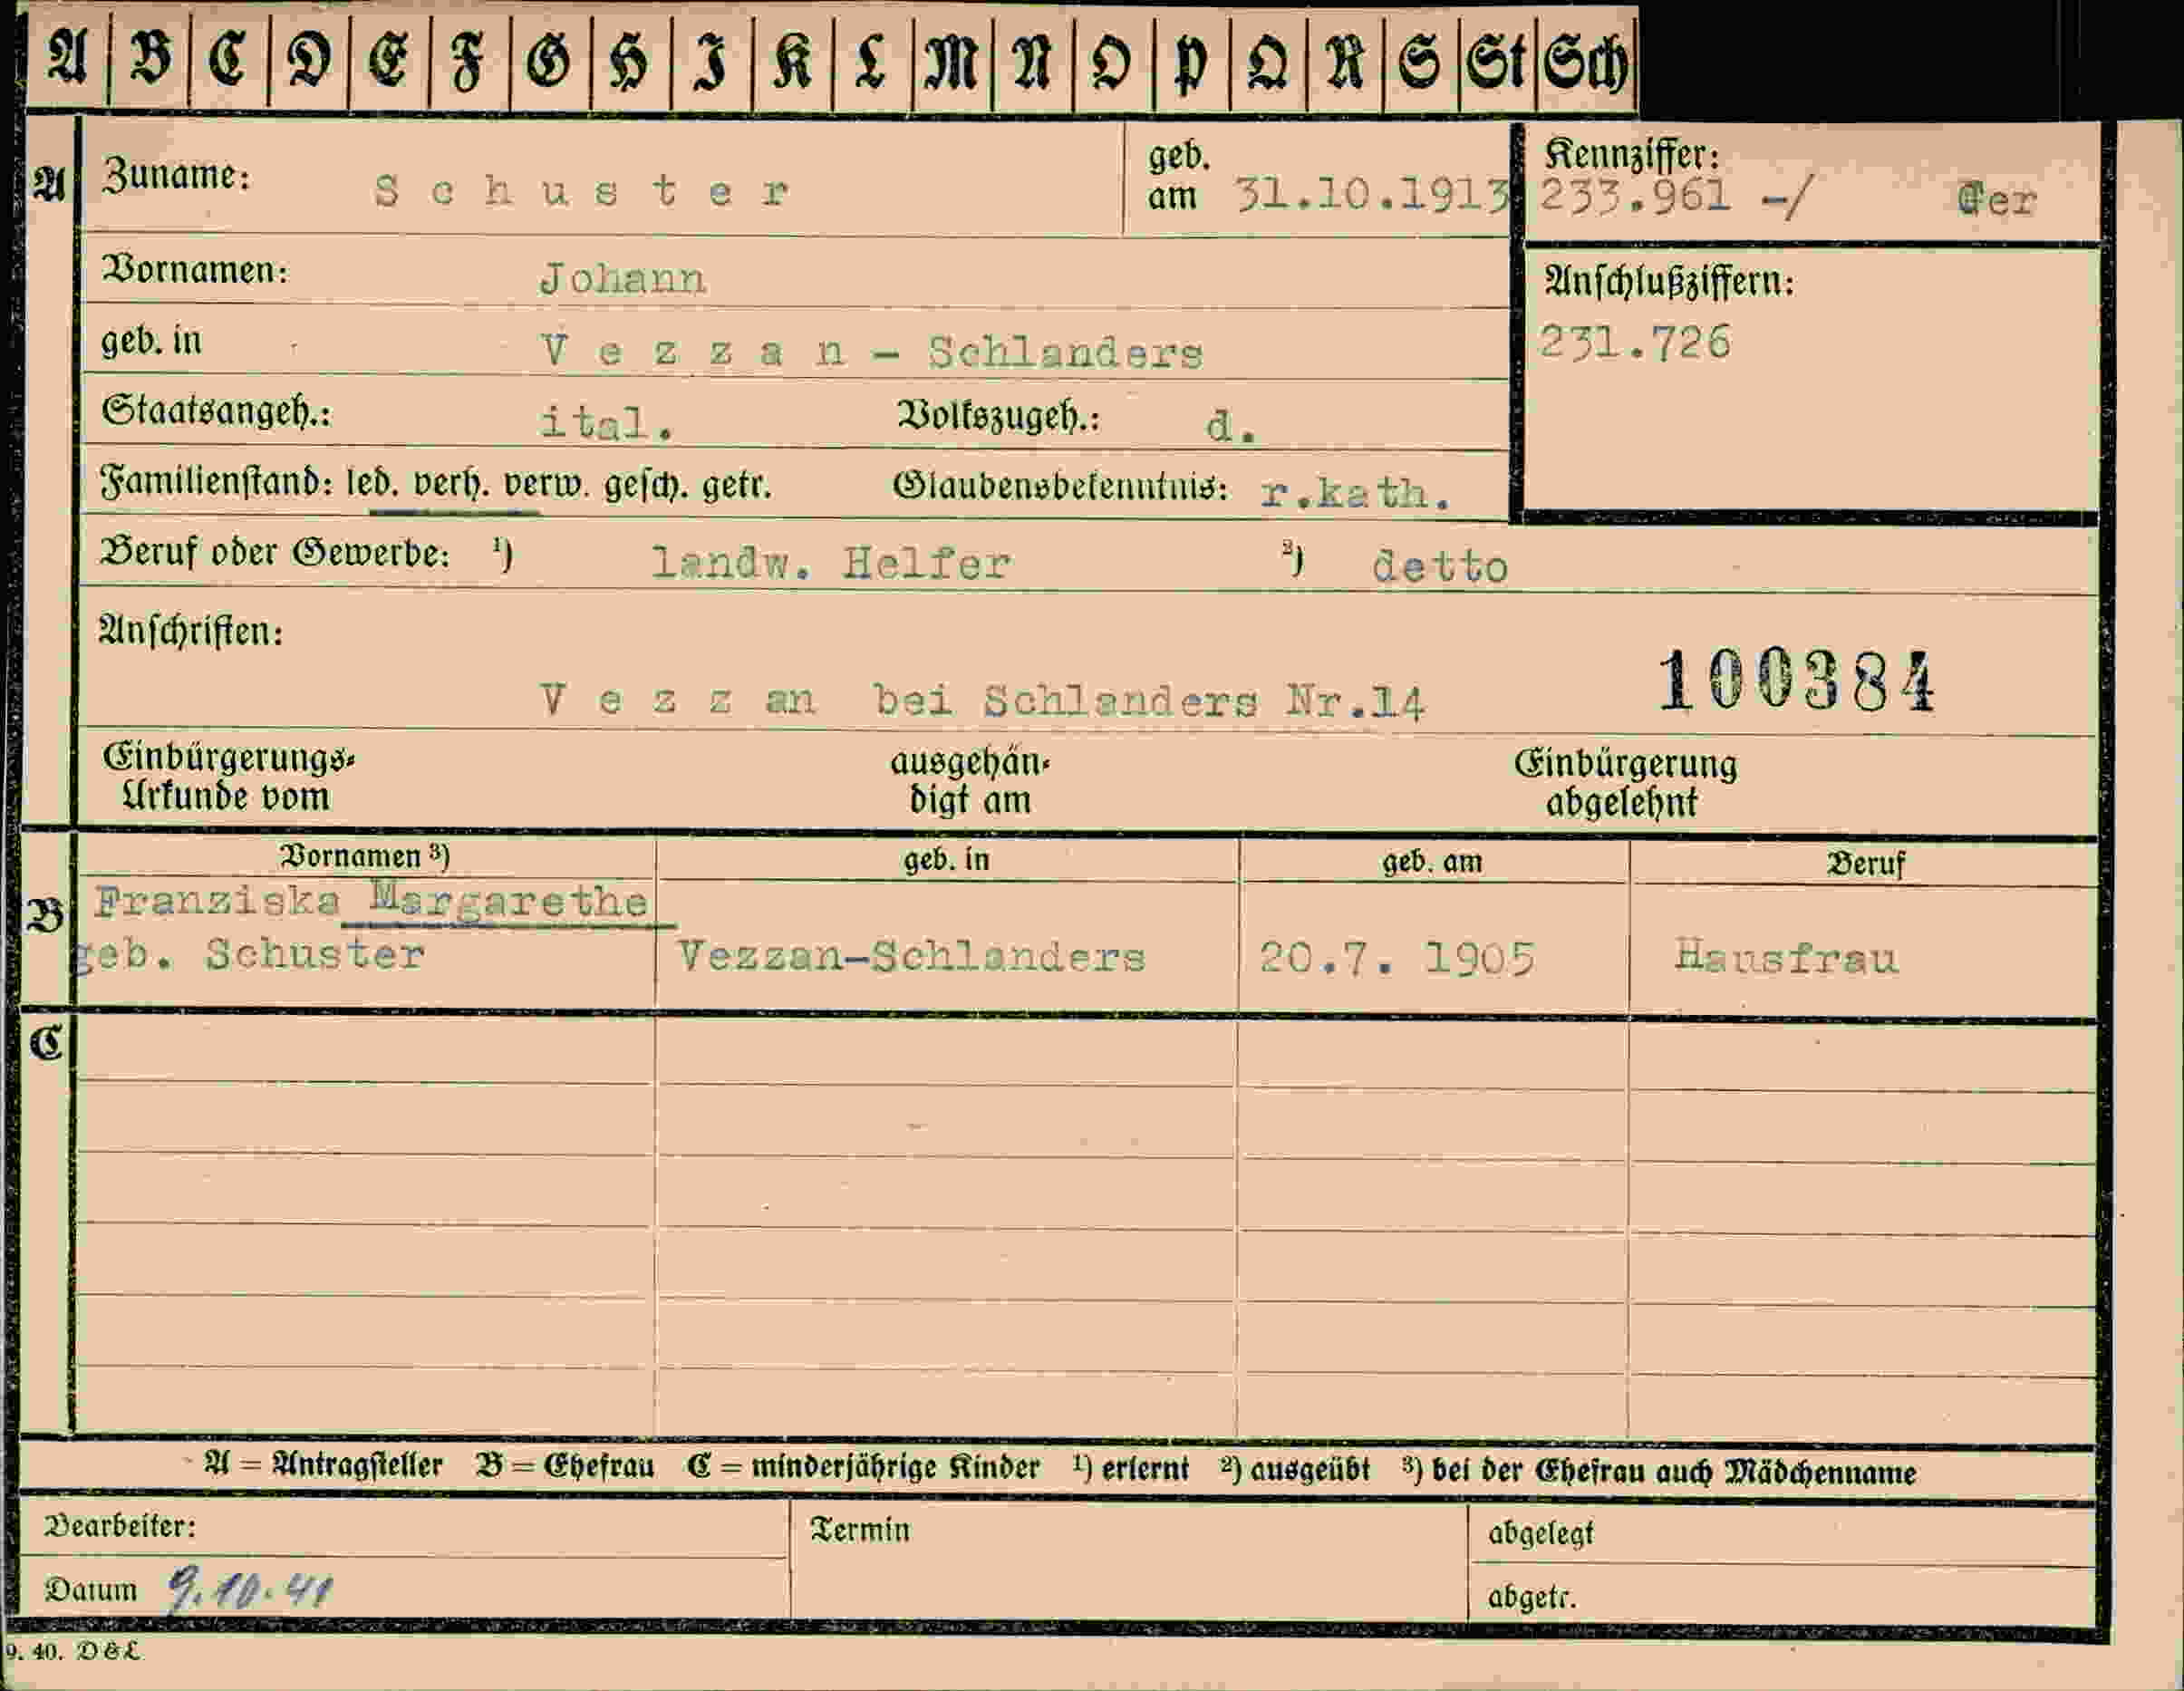 A B C D E F G H I K L M N O P Q R S St Sch
A Zuname: Schuster geb. am 31.10.1913 Kennziffer: 233.961 -/
Vornamen: Johann
Anschlußziffern:
geb. in Vezzan - Schlanders 231.726
Staatsangeh.: ital. Volkszugeh.: d.
Familienstand: led. verh. verw. gesch. getr. Glaubensbekenntnis: r.kath.
Beruf oder Gewerbe: 1) landw. Helfer 2) detto
Anschriften:
Vezzan bei Schlanders Nr.14 100384
Einbürgerungs- ausgehän- Einbürgerung
Urkunde vom digt am abgelehnt
Vornamen 3) geb. in geb. am Beruf
B Franziska Margarethe
geb. Schuster Vezzan-Schlanders 20.7. 1905 Hausfrau
C
A = Antragsteller B = Ehefrau C = minderjährige Kinder 1) erlernt 2) ausgeübt 3) bei der Ehefrau auch Mädchenname
Bearbeiter: Termin abgelegt
Datum 9.10.41 abgetr.
9. 40. D & L